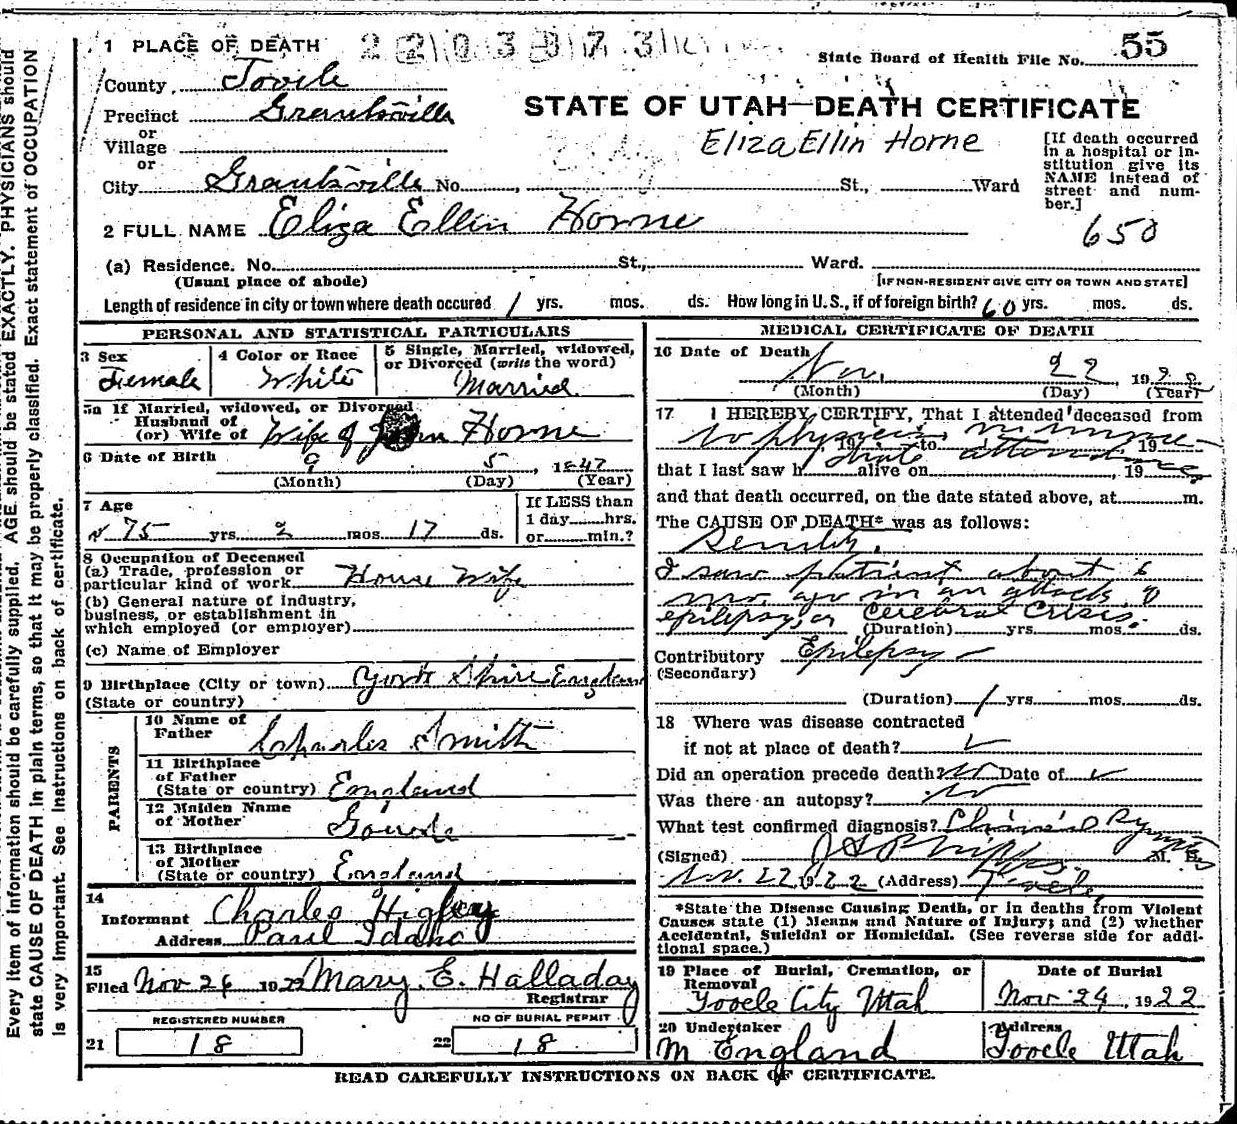 Every item of information should be carefully supplied. AGE should be stated EXACTLY. PHYSICIANS should
state CAUSE OF DEATH in plain terms, so that it may be properly classified. Exact statement of OCCUPATION
is very important. See instructions on back of certificate.
1 PLACE OF DEATH
State Board of Health File No. 55
County Tooele
Precinct Grantsville
or
Village
or
STATE OF UTAH—DEATH CERTIFICATE
Eliza Ellin Horne
[If death occurred in a hospital or institution give its NAME instead of street and number.]
City Grantsville No. , St., Ward
2 FULL NAME Eliza Ellin Horne
650
(a) Residence. No. St., Ward.
(Usual place of abode) [IF NON-RESIDENT GIVE CITY OR TOWN AND STATE]
Length of residence in city or town where death occured 1 yrs. mos. ds. How long in U. S., if of foreign birth? 60 yrs. mos. ds.
PERSONAL AND STATISTICAL PARTICULARS
3 Sex
Female
4 Color or Race
White
5 Single, Married, widowed, or Divorced (write the word)
Married
5a If Married, widowed, or Divorced
Husband of
(or) Wife of Wife of John Horne
6 Date of Birth 9 5, 1847
(Month) (Day) (Year)
7 Age
75 yrs. 2 mos. 17 ds.
If LESS than
1 day hrs.
or min.?
8 Occupation of Deceased
(a) Trade, profession or
particular kind of work House Wife
(b) General nature of industry,
business, or establishment in
which employed (or employer)
(c) Name of Employer
9 Birthplace (City or town) York Shire England
(State or country)
PARENTS
10 Name of
Father Charles Smith
11 Birthplace
of Father
(State or country) England
12 Maiden Name
of Mother
13 Birthplace
of Mother
(State or country) England
14
Informant Charles Higley
Address Paul Idaho
15
Filed Nov 26 1922 Mary E. Halladay
Registrar
REGISTERED NUMBER
21 18
NO OF BURIAL PERMIT
22 18
MEDICAL CERTIFICATE OF DEATH
16 Date of Death
Nov. 22 1922
(Month) (Day) (Year)
17 I HEREBY CERTIFY, That I attended deceased from
no physician in 19 to attendance 19
that I last saw h alive on , 19
and that death occurred, on the date stated above, at m.
The CAUSE OF DEATH* was as follows:
Senility.
I saw patient about 6
mos. ago in an attack of
epilepsy, or Cerebral Crisis.
(Duration) yrs. mos. ds.
Contributory Epilepsy
(Secondary)
(Duration) 1 yrs. mos. ds.
18 Where was disease contracted
if not at place of death?
Did an operation precede death? no Date of
Was there an autopsy? no
What test confirmed diagnosis?
(Signed) Phipps M. D.
Nov. 22, 1922 (Address) Tooele
*State the Disease Causing Death, or in deaths from Violent
Causes state (1) Means and Nature of Injury; and (2) whether
Accidental, Suicidal or Homicidal. (See reverse side for additional space.)
19 Place of Burial, Cremation, or
Removal
Tooele City Utah
Date of Burial
Nov 24, 1922
20 Undertaker
M England
Address
Tooele Utah
READ CAREFULLY INSTRUCTIONS ON BACK OF CERTIFICATE.